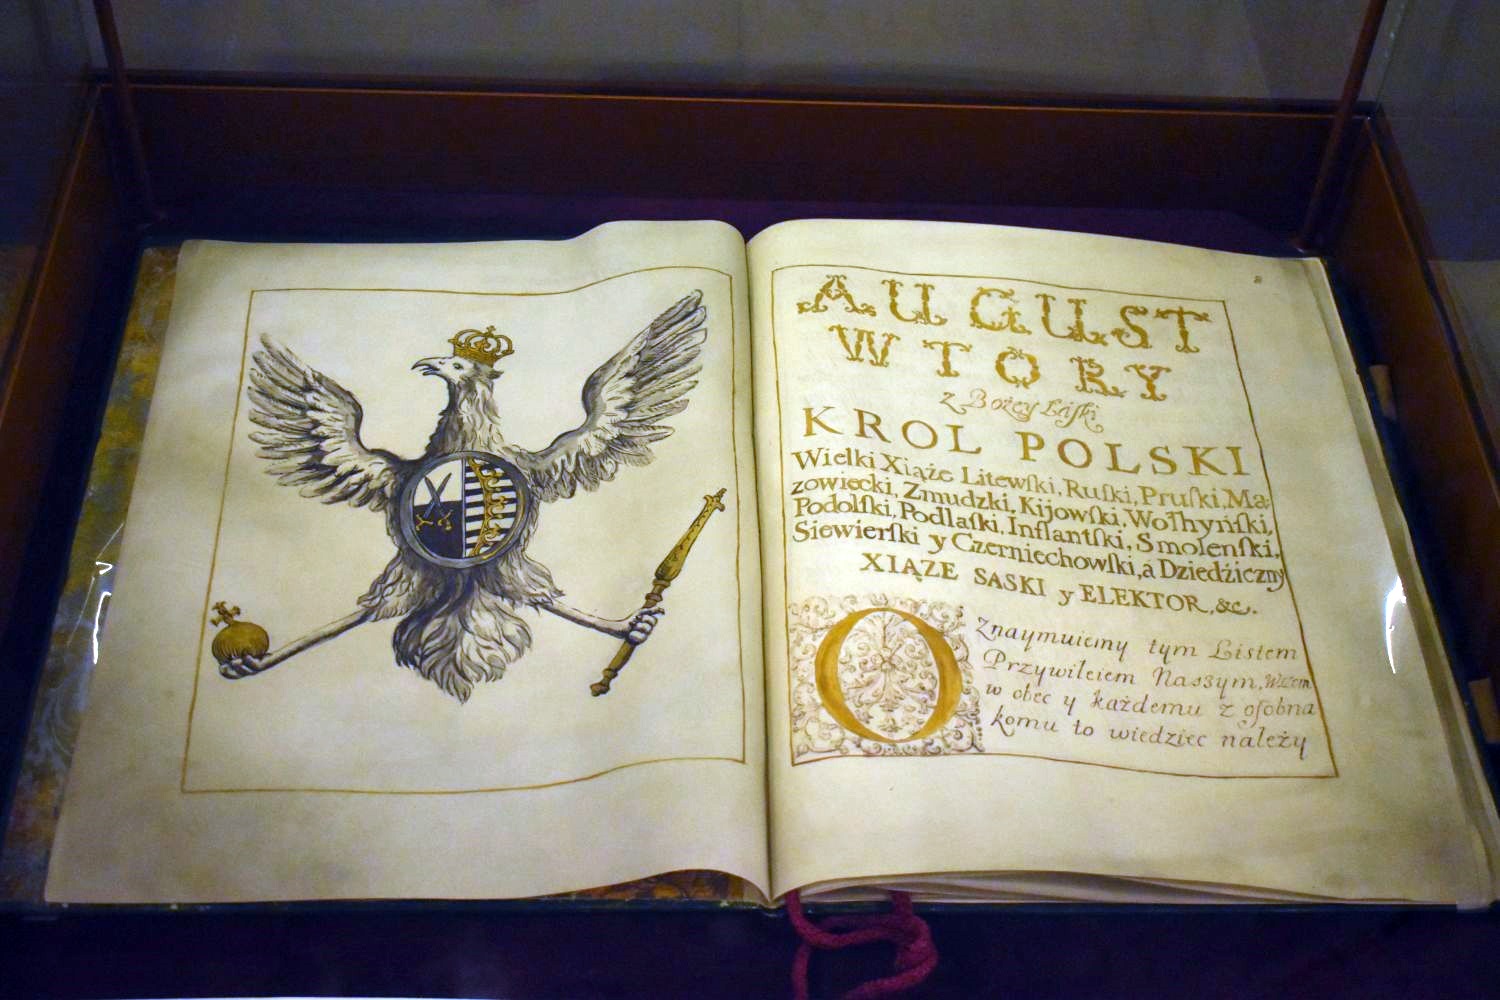 AUGUST
WTORY
z Bożey Łaſki
KROL POLSKI
Wielki Xiąże Litewſki, Ruſki, Pruſki, Ma-
zowiecki, Zmudzki, Kijowſki, Wołhyńſki,
Podolſki, Podlaſki, Inflantſki, Smolenſki,
Siewierſki y Czerniechowſki, a Dziedźiczny
XIĄŻE SASKI y ELEKTOR, &c.
Oznaymuiemy tym Listem
Przywileiem Naszym, Wszem
w obec y każdemu z oſobna
komu to wiedziec należy